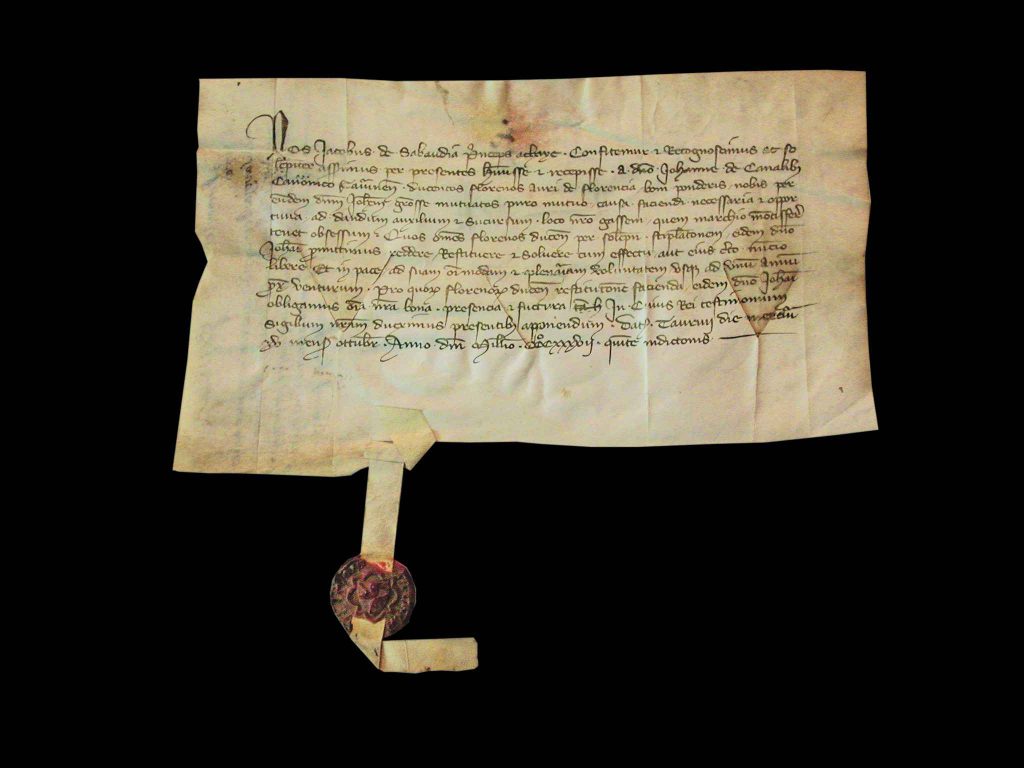 Nos Jacobus de Sabaudia Princeps achaye. Confitemur et Recognoscimus et se
per presentes habuisse et recepisse. A dno Johanne de Canalib
Canonico ducentos florenos auri de florencia boni ponderis nobis per
eundem dnm Johem grosse mutuatos puro mutuo causa faciendi necessaria et oppor
tuna ad dandum auxilium et Sucursum loco nro gasseni quem marchio
tenet obsessum. Quos omes florenos ducen per stiplatonem eidem dno
promittimus reddere Restituere et Soluere cum effectu aut eius nuncio
libere Et in pace ad suam voluntatem usq ad unum annum
venturum. Pro quorum florenorum ducen restitutone facienda eidem dno Johani
obligamus oia nra bona presencia et futura In Cuius Rei testimonium
Sigillum nrum duximus presentib apponendum. Dat Taurini die
xv mens octubr. Anno dni Millio CCCXXXVII quinte indictonis